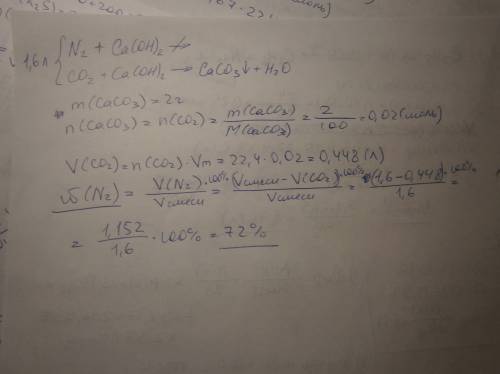 1,6л { N₂ + Ca(OH)₂ ↛
CO₂ + Ca(OH)₂ → CaCO₃↓ + H₂O
m(CaCO₃) = 2г
n(CaCO₃) = n(CO₂) = m(CaCO₃)/M(CaCO₃) = 2/100 = 0,02(моль)
V(CO₂) = n(CO₂) · Vm = 22,4 · 0,02 = 0,448 (л)
(N₂) = V(N₂)·100%/Vсмеси = (Vсмеси - V(CO₂))·100%/Vсмеси = (1,6-0,448)·100%/1,6 =
= 1,152/1,6 · 100% = 72%